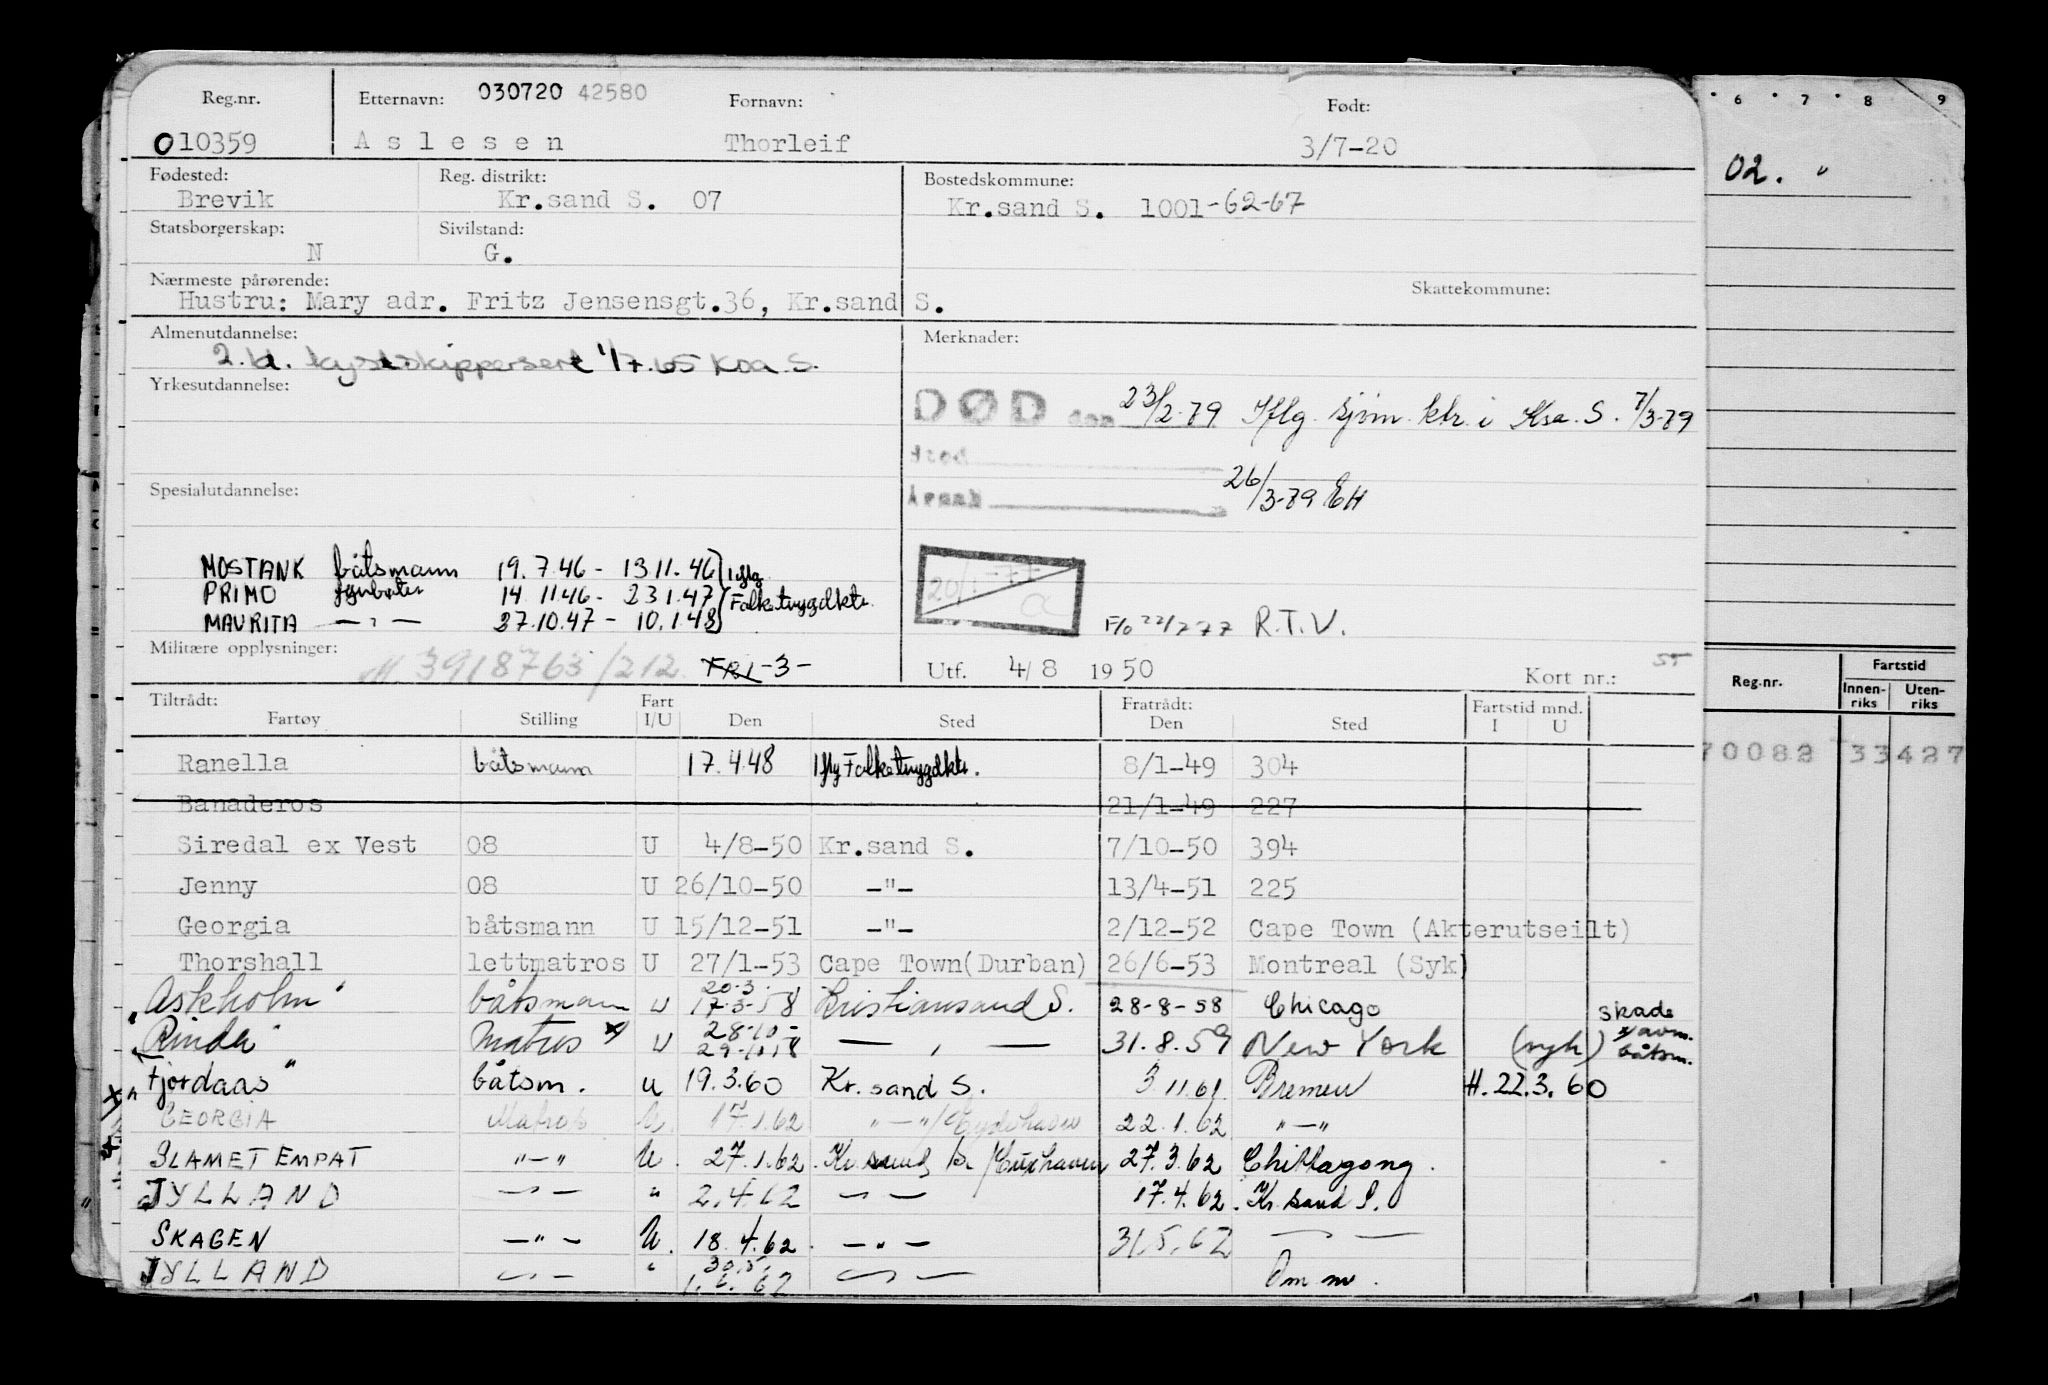 Reg.nr. Etternavn: 030720 42580 Fornavn: Født:
010359 Aslesen Thorleif 3/7-20
Fødested: Reg. distrikt: Bostedskommune:
Brevik Kr.sand S. 07 Kr.sand S. 1001-62-67
Statsborgerskap: Sivilstand:
N G.
Nærmeste pårørende: Skattekommune:
Hustru: Mary adr. Fritz Jensensgt.36, Kr.sand S.
Almenutdannelse: Merknader:
2. kl. kystskippersert 1/7.65 Kra S.
Yrkesutdannelse:
DØD den 23/2-79 Iflg. sjøm. ktr. i Krs. S. 7/3-79
Sted
Årsak 26/3-79 EH
Spesialutdannelse:
MOSTANK båtsmann 19.7.46 - 13.11.46 Iflg.
PRIMO fyrbøter 14.11.46 - 23.1.47 Folketrygdktr.
MAURITA — " — 27.10.47 - 10.1.48
20/1-77
F/o 22/7 77 R.T.V.
Militære opplysninger: M. 3918763/212 FRI -3-
Utf. 4/8 1950 Kort nr.: 55
Tiltrådt: Fart Fratrådt: Fartstid mnd.
Fartøy Stilling I/U Den Sted Den Sted I U
Ranella båtsmann 17.4.48 Iflg Folketrygdktr. 8/1-49 304
Banaderos 21/1-49 227
Siredal ex Vest 08 U 4/8-50 Kr.sand S. 7/10-50 394
Jenny 08 U 26/10-50 -"- 13/4-51 225
Georgia båtsmann U 15/12-51 -"- 2/12-52 Cape Town (Akterutseilt)
Thorshall lettmatros U 27/1-53 Cape Town(Durban) 26/6-53 Montreal (Syk)
"Askholm" båtsmann U 20-3- 17-3-58 Kristiansand S. 28-8-58 Chicago skade
"Rinda" Matros x) U 28-10- 29-10-58 — " — 31.8.59 New York (syk) x) avm. båtsm.
"Fjordaas" båtsm. U 19.3.60 Kr.sand S. 3.11.61 Bremen H. 22.3.60
GEORGIA Matros U. 17.1.62 " — " / Eydehavn 22.1.62 " — "
SLAMET EMPAT " — " U. 27.1.62 Kr.sand S. / Cuxhaven 27.3.62 Chittagong.
JYLLAND — " — " 2.4.62 — " — 17.4.62. Kr.sand S.
SKAGEN — " — U. 18.4.62. — " — 31.5.62 — " —
JYLLAND — " — " 30.5. 1.6.62 — " — Om nr.
6 7 8 9
02. "
Reg.nr. Fartstid
Innen-riks Uten-riks
70082 33427